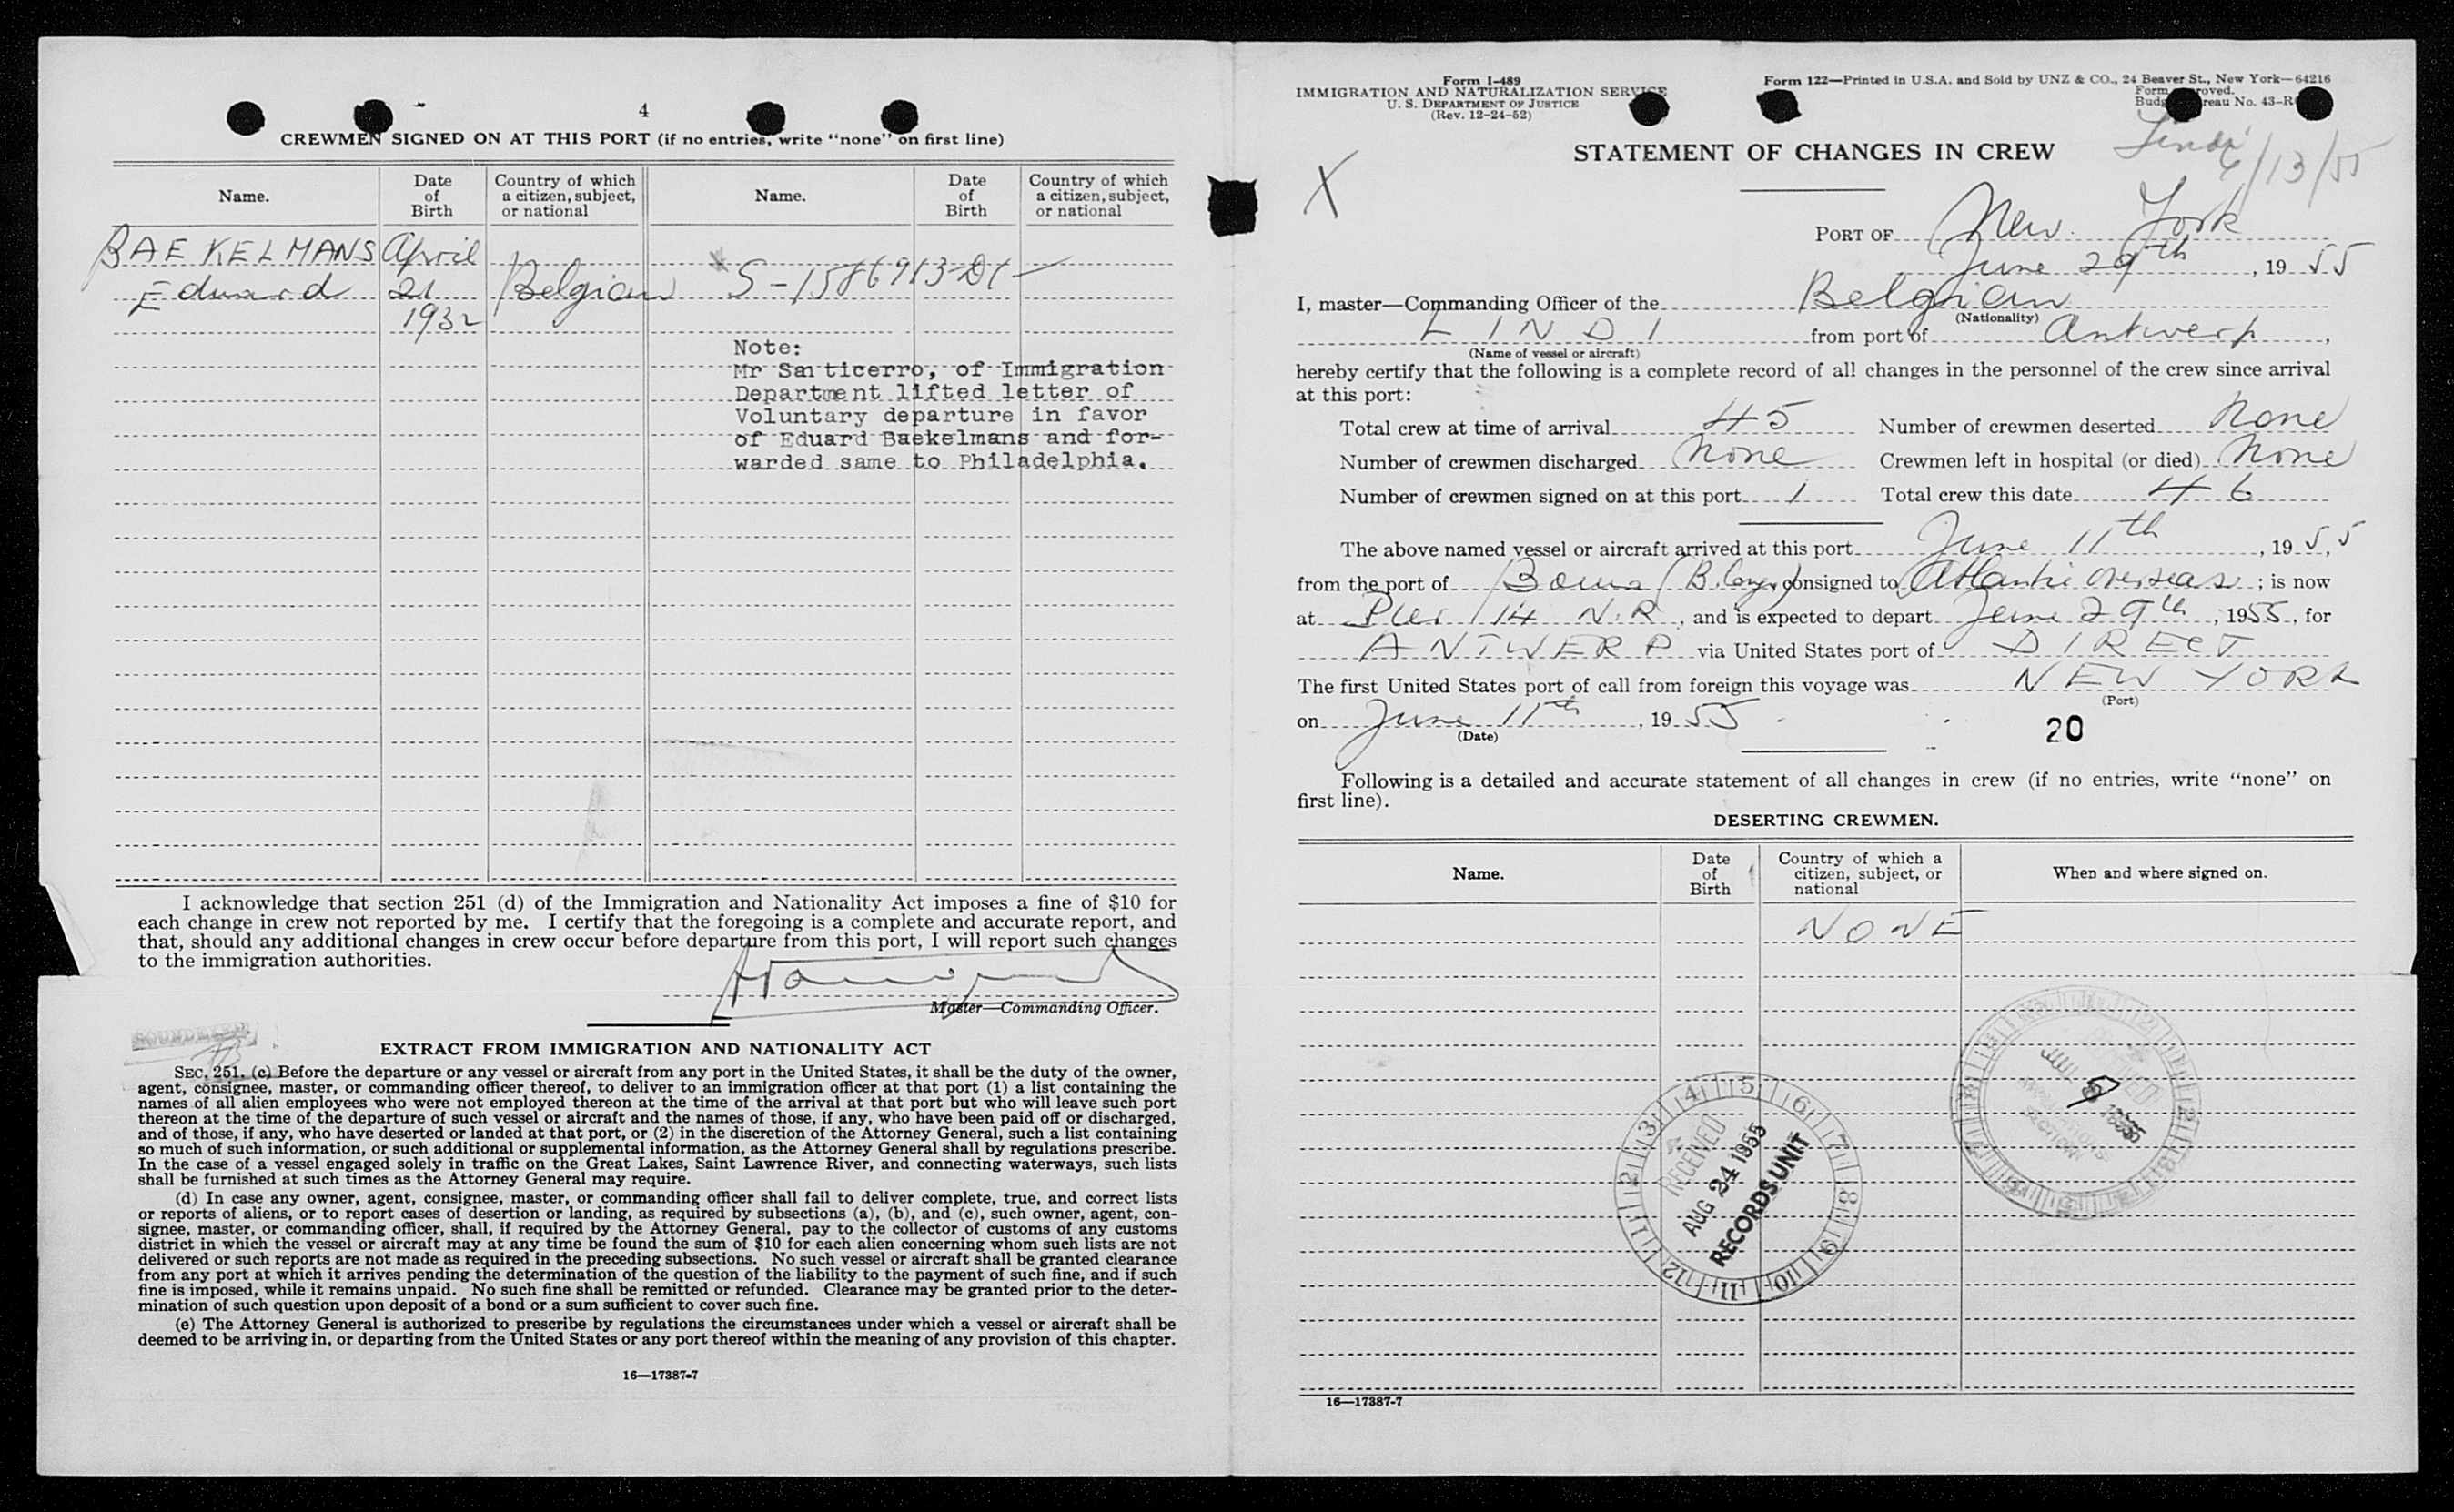 4
CREWMEN SIGNED ON AT THIS PORT (if no entries, write "none" on first line)
Name. Date of Birth Country of which a citizen, subject, or national Name. Date of Birth Country of which a citizen, subject, or national
BAEKELMANS April
Eduard 21 Belgian S-1586913-D1
1932
Note:
Mr Santicerro, of Immigration
Department lifted letter of
Voluntary departure in favor
of Eduard Baekelmans and for-
warded same to Philadelphia.
I acknowledge that section 251 (d) of the Immigration and Nationality Act imposes a fine of $10 for
each change in crew not reported by me. I certify that the foregoing is a complete and accurate report, and
that, should any additional changes in crew occur before departure from this port, I will report such changes
to the immigration authorities.
Master—Commanding Officer.
SOUNDEXED
EXTRACT FROM IMMIGRATION AND NATIONALITY ACT
SEC. 251. (c) Before the departure or any vessel or aircraft from any port in the United States, it shall be the duty of the owner,
agent, consignee, master, or commanding officer thereof, to deliver to an immigration officer at that port (1) a list containing the
names of all alien employees who were not employed thereon at the time of the arrival at that port but who will leave such port
thereon at the time of the departure of such vessel or aircraft and the names of those, if any, who have been paid off or discharged,
and of those, if any, who have deserted or landed at that port, or (2) in the discretion of the Attorney General, such a list containing
so much of such information, or such additional or supplemental information, as the Attorney General shall by regulations prescribe.
In the case of a vessel engaged solely in traffic on the Great Lakes, Saint Lawrence River, and connecting waterways, such lists
shall be furnished at such times as the Attorney General may require.
(d) In case any owner, agent, consignee, master, or commanding officer shall fail to deliver complete, true, and correct lists
or reports of aliens, or to report cases of desertion or landing, as required by subsections (a), (b), and (c), such owner, agent, con-
signee, master, or commanding officer, shall, if required by the Attorney General, pay to the collector of customs of any customs
district in which the vessel or aircraft may at any time be found the sum of $10 for each alien concerning whom such lists are not
delivered or such reports are not made as required in the preceding subsections. No such vessel or aircraft shall be granted clearance
from any port at which it arrives pending the determination of the question of the liability to the payment of such fine, and if such
fine is imposed, while it remains unpaid. No such fine shall be remitted or refunded. Clearance may be granted prior to the deter-
mination of such question upon deposit of a bond or a sum sufficient to cover such fine.
(e) The Attorney General is authorized to prescribe by regulations the circumstances under which a vessel or aircraft shall be
deemed to be arriving in, or departing from the United States or any port thereof within the meaning of any provision of this chapter.
16—17387-7
Form I-489
IMMIGRATION AND NATURALIZATION SERVICE
U. S. DEPARTMENT OF JUSTICE
(Rev. 12-24-52)
Form 122—Printed in U.S.A. and Sold by UNZ & CO., 24 Beaver St., New York—64216
Form
No. 43-R
X
STATEMENT OF CHANGES IN CREW
Lindi
6/13/55
PORT OF New York
June 29th, 1955
I, master—Commanding Officer of the Belgian
(Nationality)
LINDI from port of Antwerp,
(Name of vessel or aircraft)
hereby certify that the following is a complete record of all changes in the personnel of the crew since arrival
at this port:
Total crew at time of arrival 45 Number of crewmen deserted None
Number of crewmen discharged None Crewmen left in hospital (or died) None
Number of crewmen signed on at this port 1 Total crew this date 46
The above named vessel or aircraft arrived at this port June 11th, 1955,
from the port of Boma (B. Congo) consigned to Atlantic Overseas; is now
at Pier 14 N.R., and is expected to depart June 29th, 1955, for
ANTWERP via United States port of DIRECT
The first United States port of call from foreign this voyage was NEW YORK
(Port)
on June 11th, 1955
(Date)
20
Following is a detailed and accurate statement of all changes in crew (if no entries, write "none" on
first line).
DESERTING CREWMEN.
Name. Date of Birth Country of which a citizen, subject, or national When and where signed on.
NONE
RECEIVED
AUG 24 1955
RECORDS UNIT
1 2 3 4 5 6 7 8 9 10 11 12
JUL 1955
16—17387-7